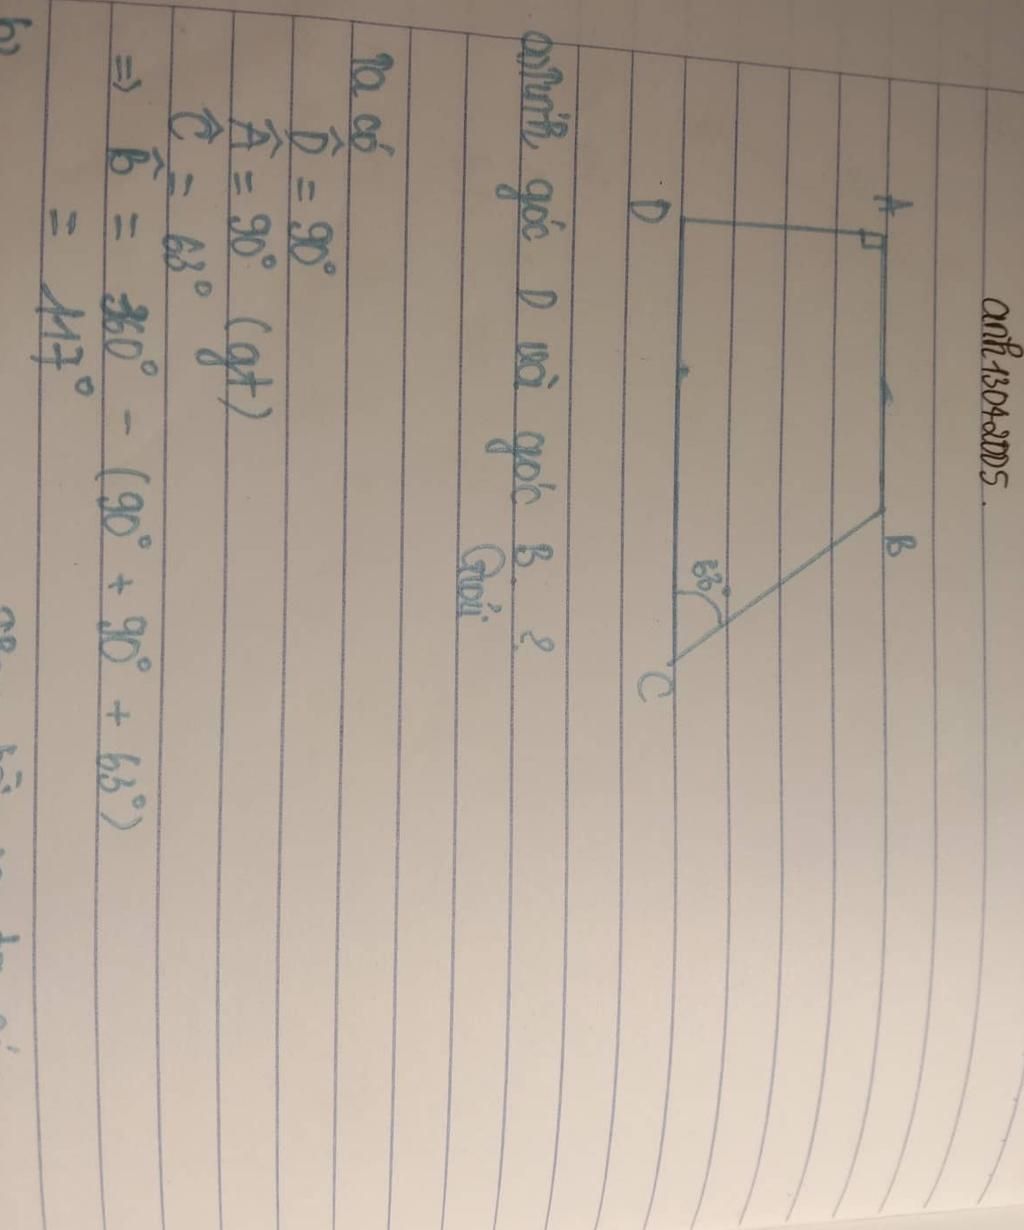 anh13042005.
A
B
63°
D
C
a) Tính góc D và góc B ?
Giải
Ta có
D̂ = 90°
Â = 90° (gt)
Ĉ = 63°
=> B̂ = 360° - (90° + 90° + 63°)
= 117°
b)